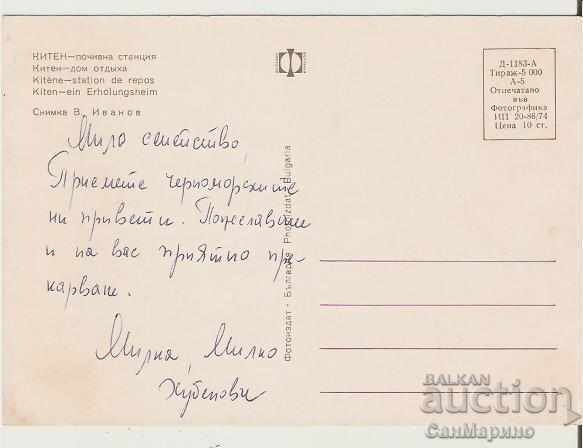 КИТЕН—почивна станция
Китен—дом отдыха
Kitène—station de repos
Kiten—ein Erholungsheim
Снимка В. Иванов
Д-1183-А
Тираж-5 000
А-5
Отпечатано
във
Фотографика
ИП 20-86/74
Цена 10 ст.
Мило семейство,
Приемете черноморските
ни привети. Пожелаваме
и на вас приятно пре-
карване.
Милка, Милко
Хубенови
Фотоиздат · България Photoizdat · Bulgaria
BALKAN
auction
СанМарино